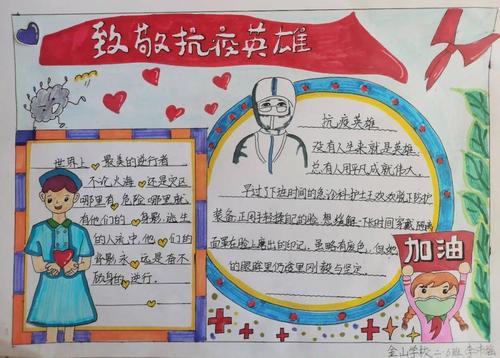 致敬抗疫英雄
世界上最美的逆行者
不论火海还是灾区
哪里有危险哪里就
有他们的身影逃生
的人流中他们的
背影永远是奋不
顾身的逆行.
抗疫英雄
没有人生来就是英雄.
总有人用平凡成就伟大.
早过了下班时间的急诊科护士王欢欢脱下防护
装备,正用手轻揉自己的脸,想缓解
面罩在脸上磨出的印记,虽略有疲色,但她
的眼眸里仍液里刚毅与坚定.
加油
金山学校二.6班